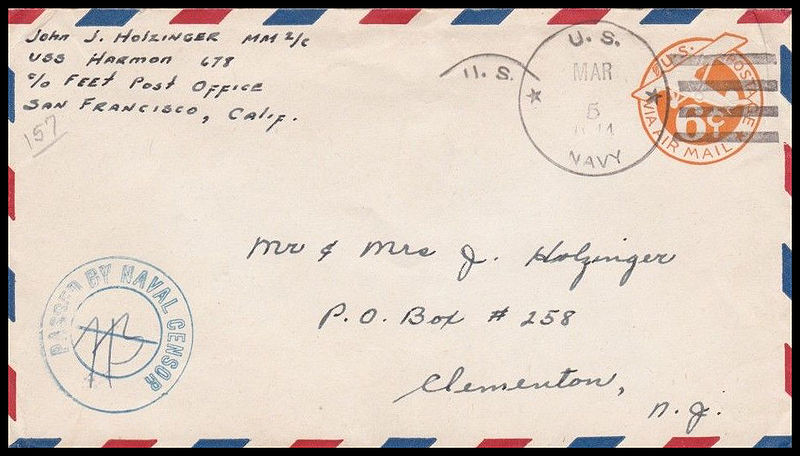 John J. Holzinger MM 2/c
USS Harmon 678
c/o FEET Post Office
San Francisco, Calif.
157
U. S.
U. S.
MAR
5
NAVY
U.S. POSTAGE
6¢
VIA AIR MAIL
Mr & Mrs J. Holzinger
P.O. Box # 258
Clementon,
N.J.
PASSED BY NAVAL CENSOR